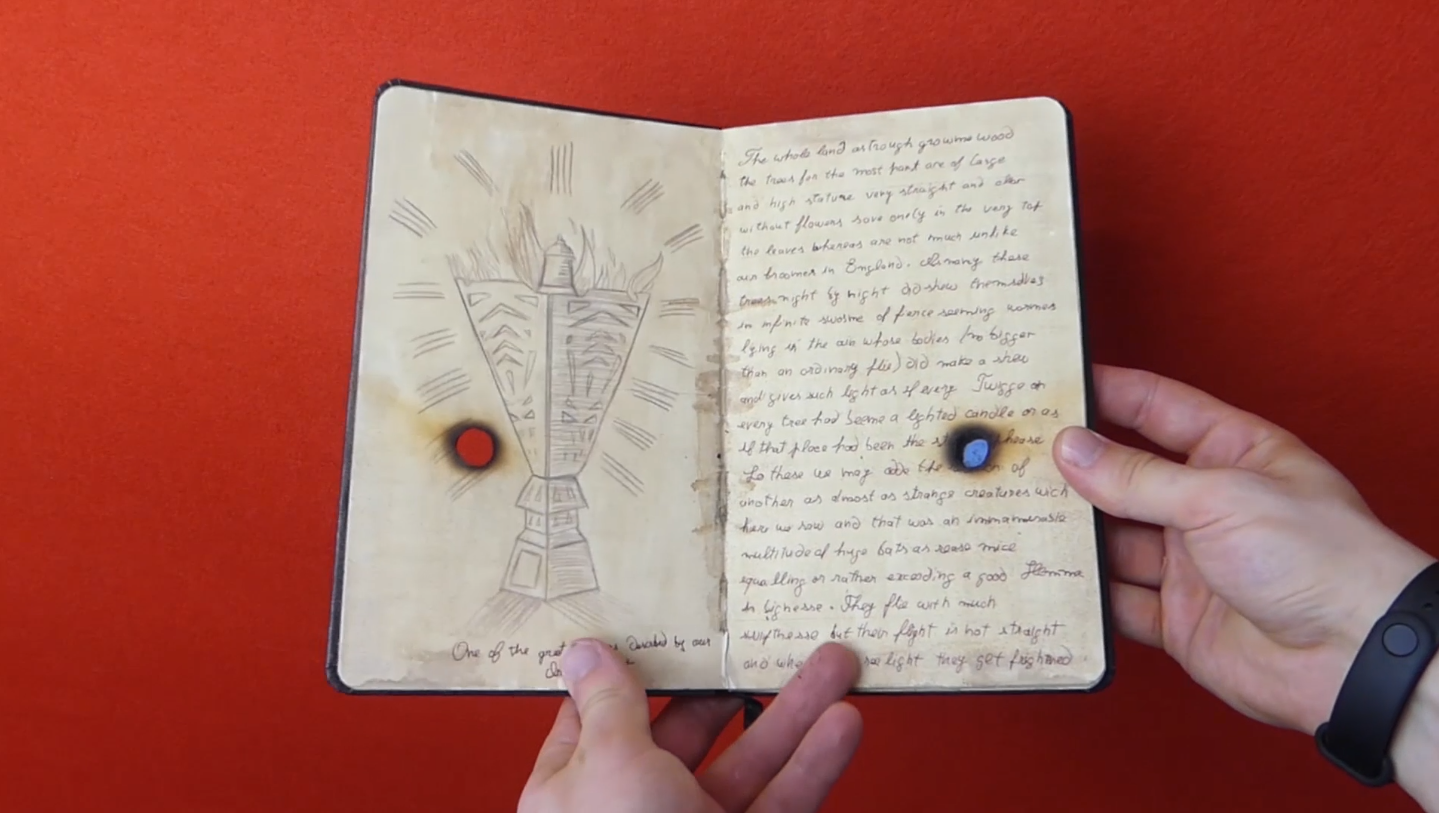 One of the gret by our
The whole land astrough growine wood
the trees for the most part are of large
and high stature very straight and cler
without flowers save onely in the very top
the leaves whereas are not much unlike
our broomes in England. Among these
trees night by night did shew themselves
in infinite sworme of fierce seeming wormes
lying in the air whose bodies (no bigger
than an ordinary flie) did make a shew
and gives such light as if every Twigge on
every tree had beene a lighted candle or as
if that place had been the
To these we may adde the of
another as almost as strange creatures wich
here we saw and that was an innamerable
multitude of huge bats as reare mice
equalling or rather exceeding a good Hemme
in bignesse. They flie with much
swiftnesse but their flight is not straight
and light they get frightned